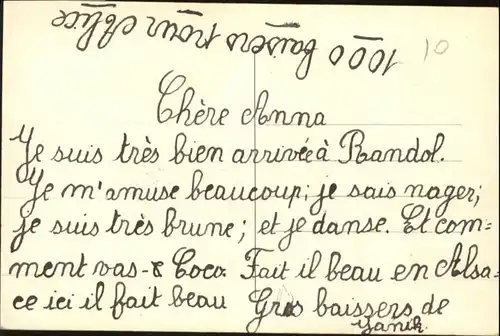 1000 baisers pour
10
Chère Anna
Je suis très bien arrivée à Randol.
Je m'amuse beaucoup; je sais nager;
je suis très brune; et je danse. Et com-
ment vas-t Coco. Fait il beau en Alsa-
ce ici il fait beau Gros baissers de
Yanik